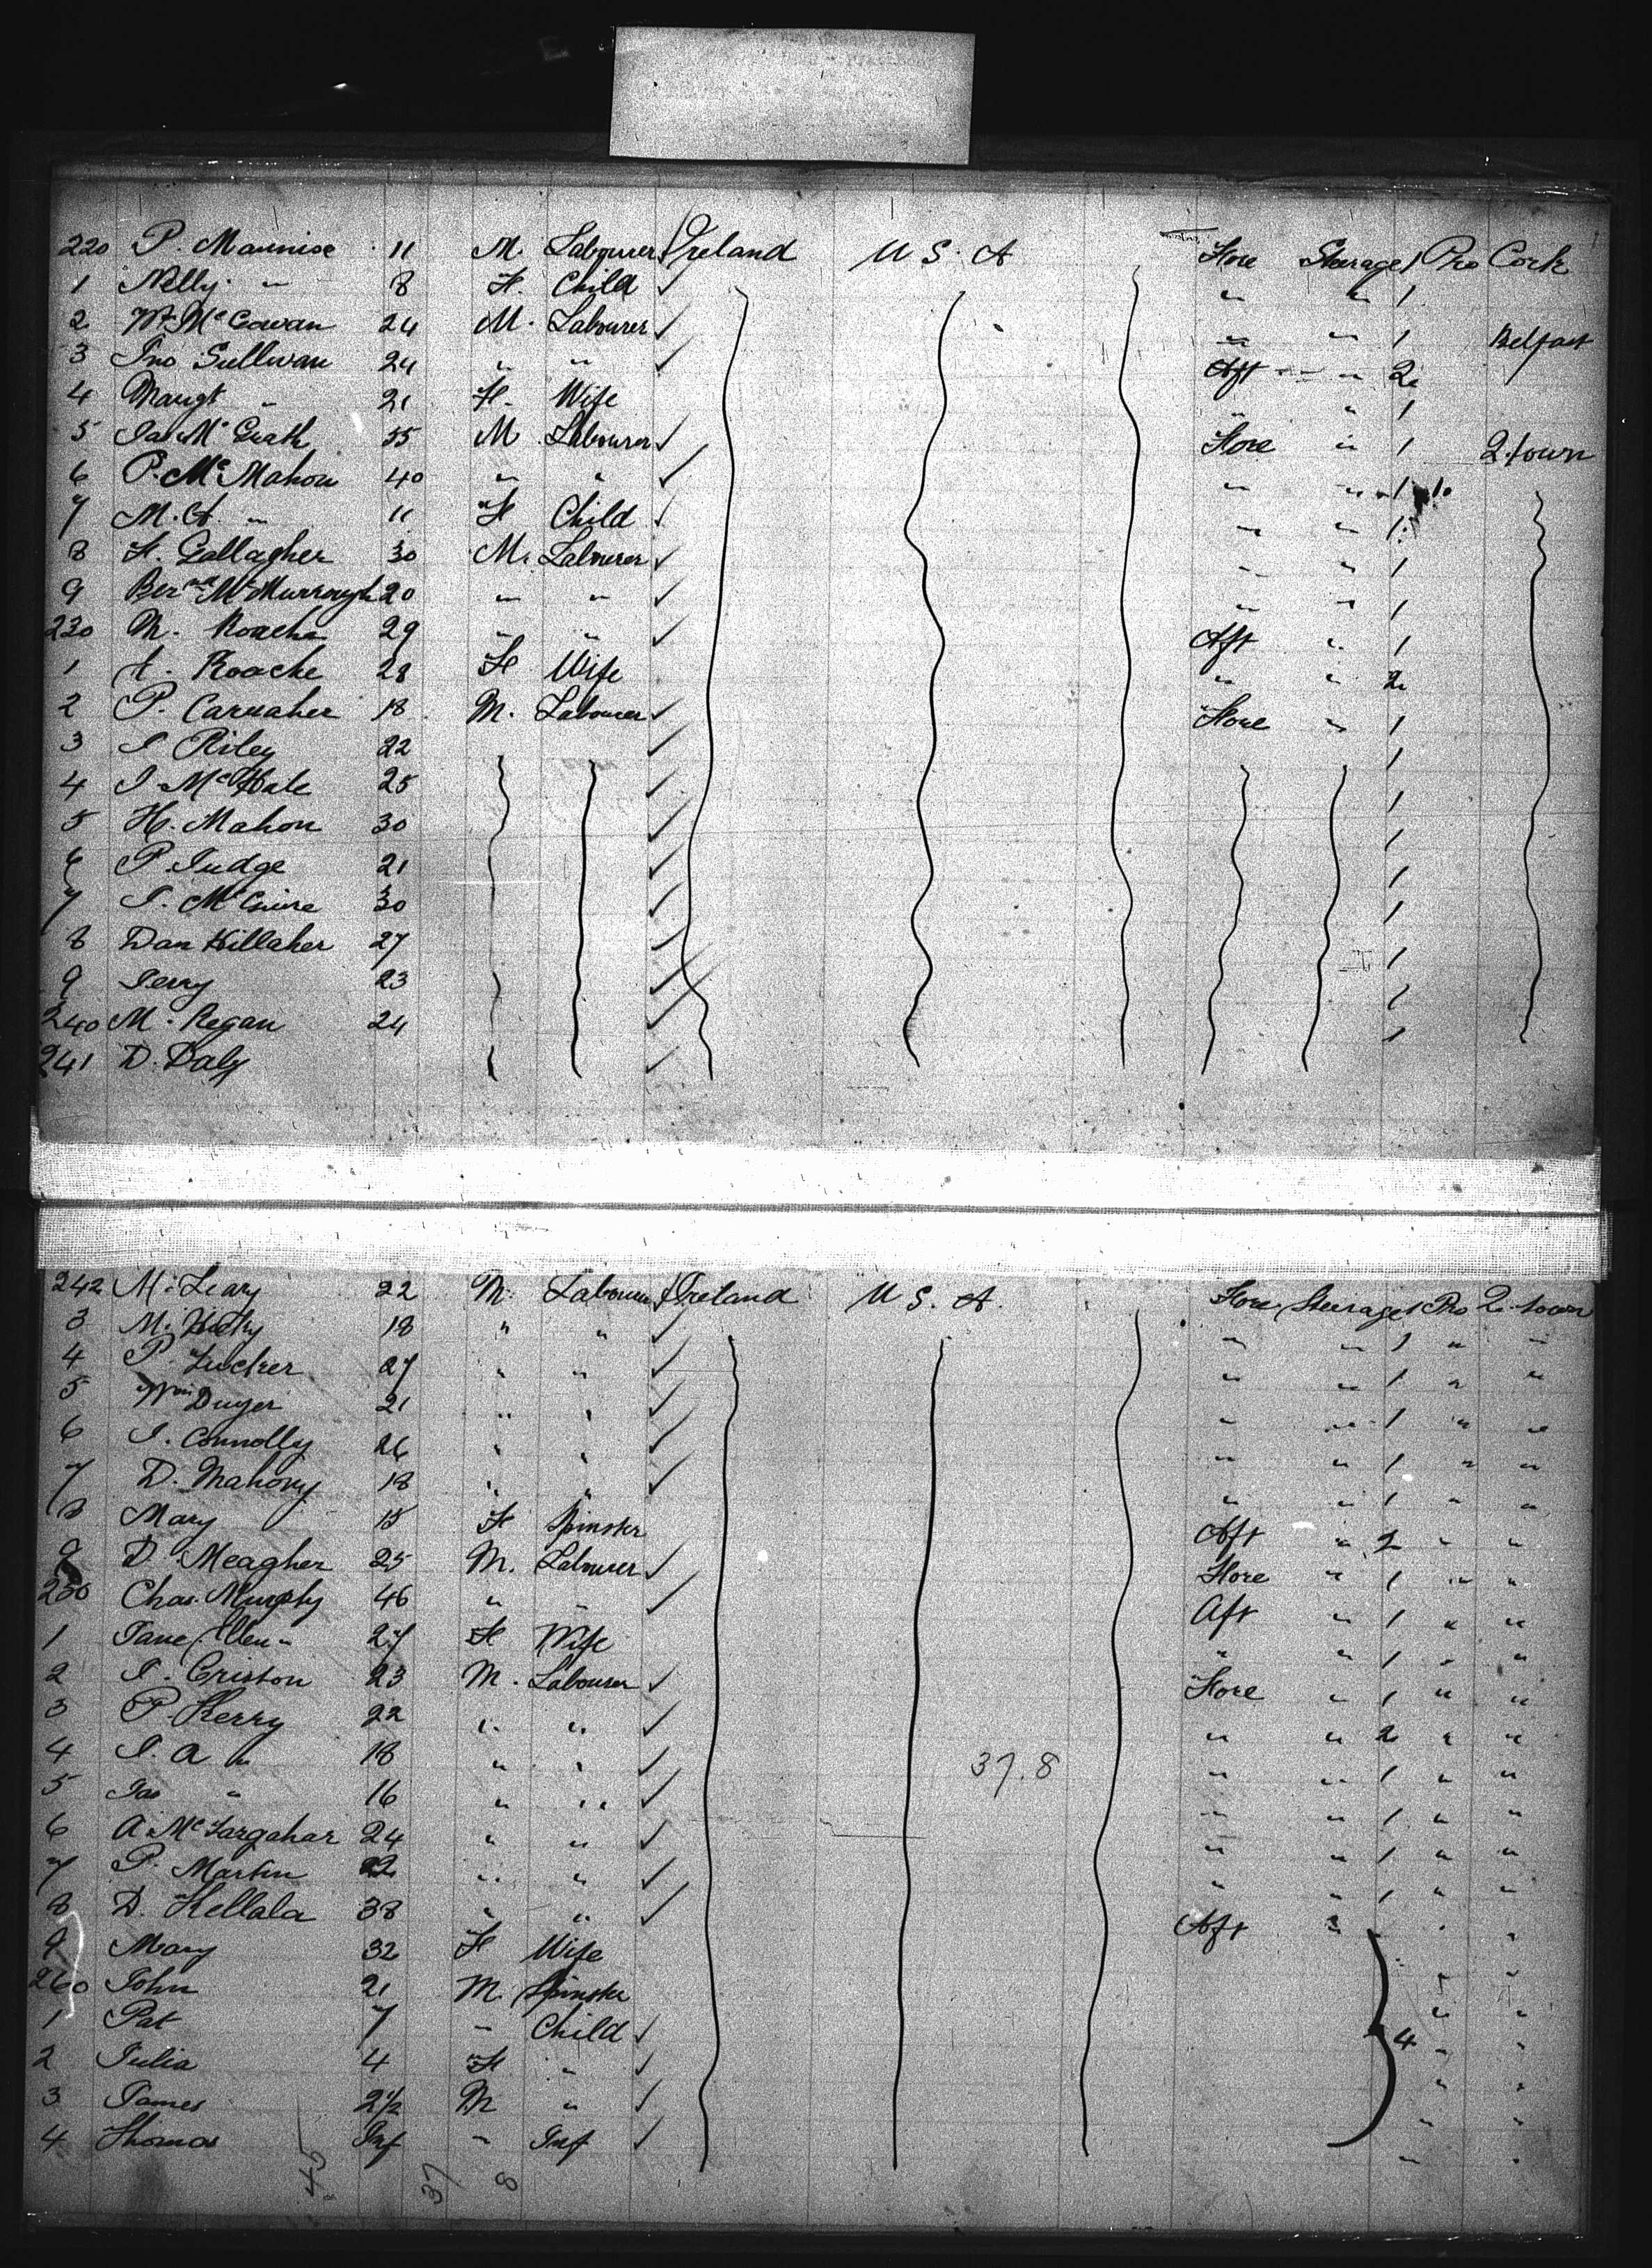 220 P. Mannise 11 M. Labourer Ireland U S. A Fore Steerage 1 Pro Cork
1 Nelly " 8 F. Child " " 1
2 Wm McGowan 24 M. Labourer " " 1 Belfast
3 Jno Sullivan 24 " " Aft " 2
4 Margt " 21 F. Wife " " 1
5 Jas McGrath 55 M Labourer Fore " 1 Q. town
6 P. McMahon 40 " " " " 1
7 M. A. " 11 F Child " " 1
8 F. Gallagher 30 M. Labourer " " 1
9 Bernd McMurrough 20 " " " " 1
230 M. Roache 29 " " Aft " 1
1 A. Roache 28 F Wife " " 2
2 P. Carraher 18 M. Labourer Fore " 1
3 J Riley 22 1
4 J. McHale 25 1
5 H. Mahon 30 1
6 P. Judge 21 1
7 J. McGuire 30 1
8 Dan Killaher 27 1
9 Jerry 23 1
240 M. Regan 24 1
241 D. Daly
242 M. Leary 22 M. Labourer Ireland U S. A. Fore Steerage 1 Pro Q. town
3 M. 18 " " " " 1 " "
4 P. 27 " " " " 1 " "
5 Wm Dwyer 21 " " " " 1 " "
6 J. Connolly 26 " " " " 1 " "
7 D. Mahony 18 " " " " 1 " "
8 Mary 15 F Spinster Aft " 2 " "
9 D. Meagher 25 M. Labourer Fore " 1 " "
250 Chas. Murphy 46 " " Aft " 1 " "
1 Jane Ellen " 27 F Wife " " 1 " "
2 J. Criston 23 M. Labourer Fore " 1 " "
3 P. Kerry 22 " " " " 2 " "
4 J. A " 18 " " 37.8 " " 1 " "
5 Jas " 16 " " " " 1 " "
6 A. McTargahar 24 " " " " 1 " "
7 P. Martin 22 " " " " 1 " "
8 D. Kellala 38 " " Aft " " "
9 Mary 32 F Wife " "
260 John 21 M. Spinster " "
1 Pat 7 " Child 4 " "
2 Julia 4 F " " "
3 James 2 1/2 M " " "
4 Thomas Inf " Inf " "
45 37 8